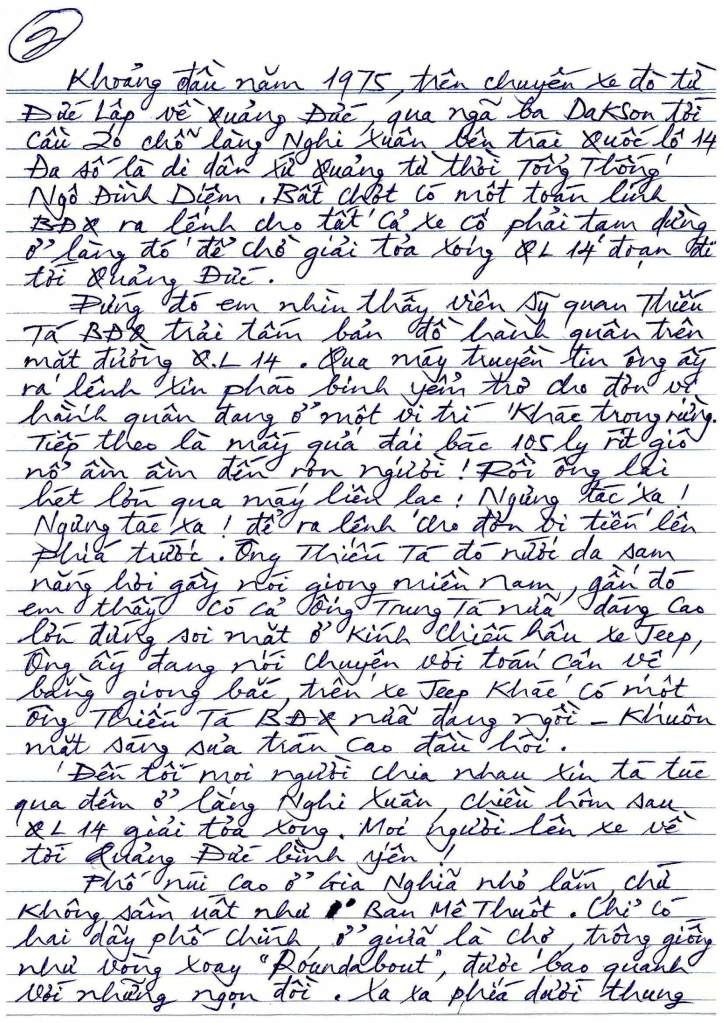 2
Khoảng đầu năm 1975, trên chuyến xe đò từ
Đức Lập về Quảng Đức, qua ngã ba DakSon tới
Cầu 20 chỗ làng Nghi Xuân bên trái Quốc lộ 14
Đa số là di dân xứ Quảng từ thời Tổng Thống
Ngô Đình Diệm. Bất chợt có một toán lính
BĐQ ra lệnh cho tất cả xe cộ phải tạm dừng
ở làng đó để chờ giải tỏa xong QL 14 đoạn đi
tới Quảng Đức.
Đứng đó em nhìn thấy viên sỹ quan Thiếu
Tá BĐQ trải tấm bản đồ hành quân trên
mặt đường Q.L 14. Qua máy truyền tin ông ấy
ra lệnh xin pháo binh yểm trợ cho đơn vị
hành quân đang ở một vị trí khác trong rừng.
Tiếp theo là mấy quả đại bác 105 ly rít gió
nổ ầm ầm đến rợn người! Rồi ông lại
hét lớn qua máy liên lạc! Ngừng tác xạ!
Ngừng tác xạ! để ra lệnh cho đơn vị tiến lên
phía trước. Ông Thiếu Tá đó nước da sạm
nắng hơi gầy nói giọng miền nam, gần đó
em thấy có cả ông Trung Tá nữa dáng cao
lớn đứng soi mặt ở kính chiếu hậu xe Jeep,
Ông ấy đang nói chuyện với toán cận vệ
bằng giọng bắc, trên xe Jeep khác có một
ông Thiếu Tá BĐQ nữa đang ngồi - Khuôn
mặt sáng sủa trán cao đầu hói.
Đến tối mọi người chia nhau xin tá túc
qua đêm ở làng Nghi Xuân, chiều hôm sau
QL 14 giải tỏa xong. Mọi người lên xe về
tới Quảng Đức bình yên!
Phố núi cao ở Gia Nghĩa nhỏ lắm, chứ
không sầm uất như Ban Mê Thuột. Chỉ có
hai dãy phố chính, ở giữa là chợ, trông giống
như vòng xoay "Roundabout", được bao quanh
với những ngọn đồi. Xa xa phía dưới thung